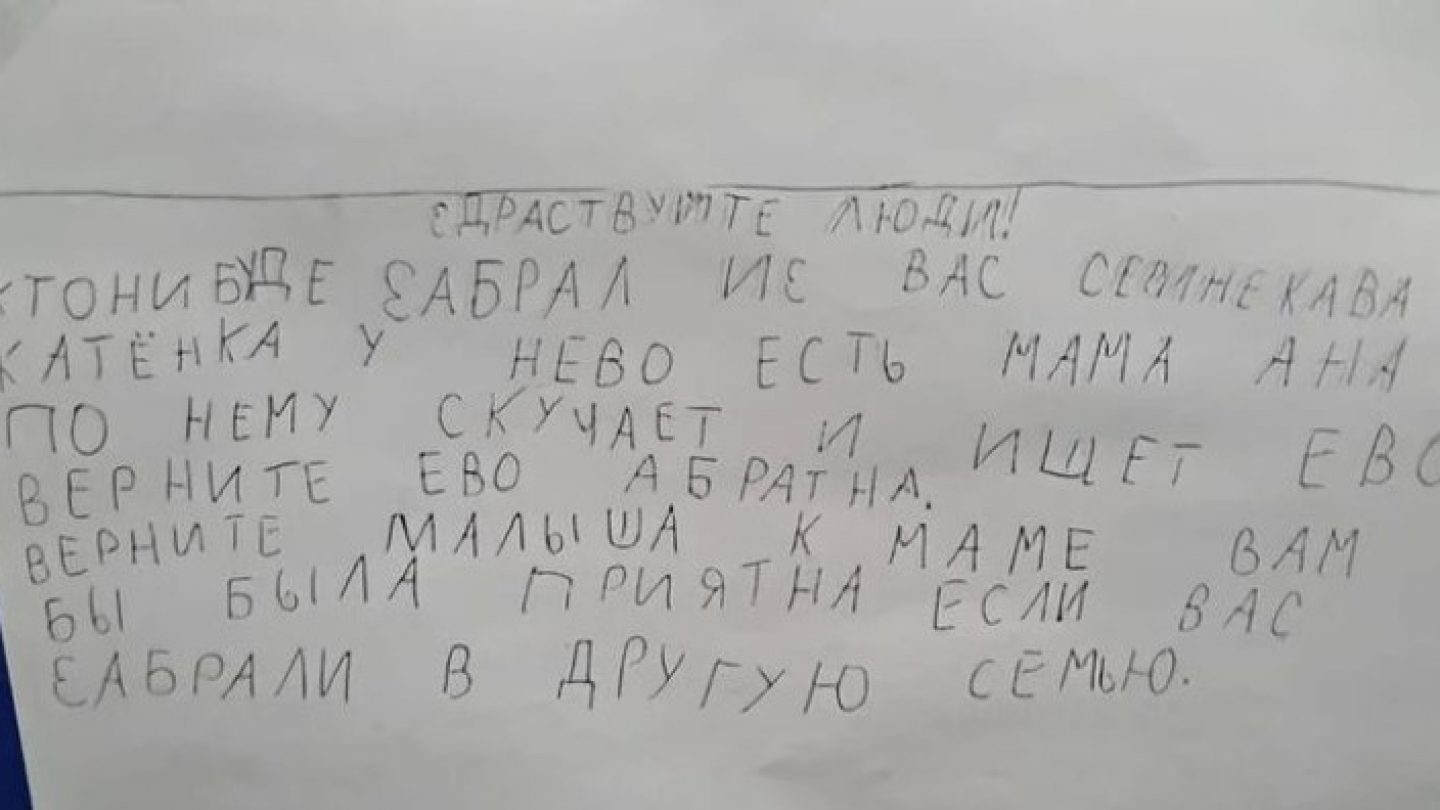 ЗДРАСТВУЙТЕ ЛЮДИ!
КТОНИБУДЕ ЗАБРАЛ ИЗ ВАС
КАТЁНКА У НЕВО ЕСТЬ МАМА АНА
ПО НЕМУ СКУЧАЕТ И ИЩЕТ ЕВО
ВЕРНИТЕ ЕВО АБРАТНА.
ВЕРНИТЕ МАЛЫША К МАМЕ ВАМ
БЫ БЫЛА ПРИЯТНА ЕСЛИ ВАС
ЗАБРАЛИ В ДРУГУЮ СЕМЬЮ.